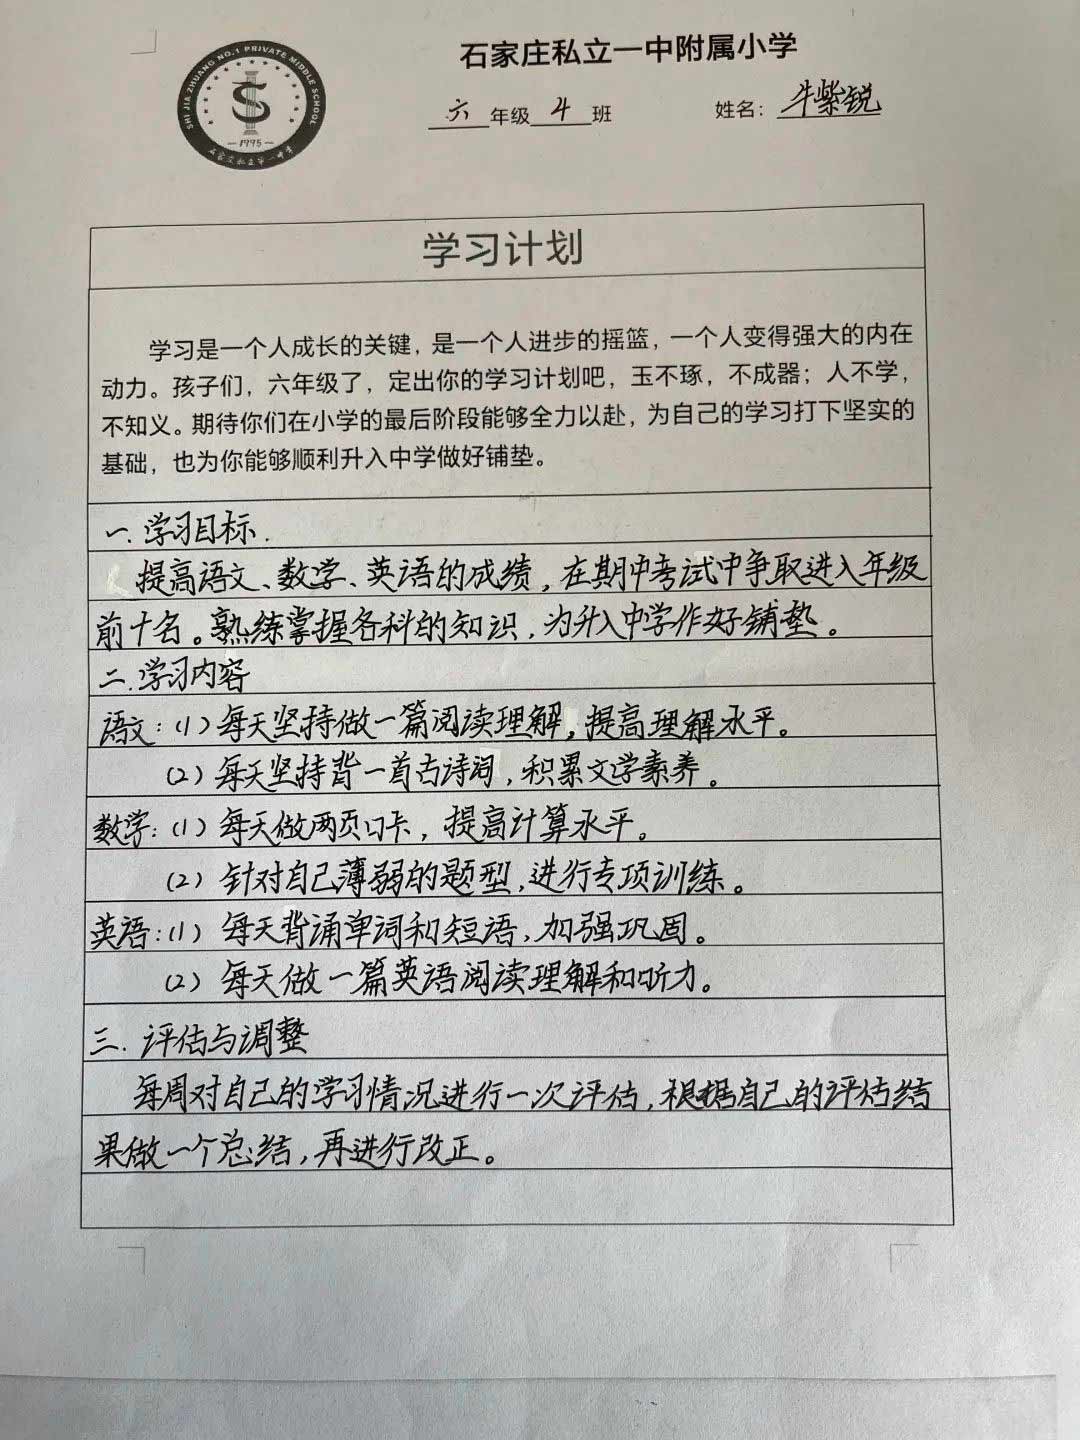 SHI JIA ZHUANG NO.1 PRIVATE MIDDLE SCHOOL
1995
石家庄私立一中附属小学
六年级4班 姓名：牛紫锐
学习计划
学习是一个人成长的关键，是一个人进步的摇篮，一个人变得强大的内在
动力。孩子们，六年级了，定出你的学习计划吧，玉不琢，不成器；人不学，
不知义。期待你们在小学的最后阶段能够全力以赴，为自己的学习打下坚实的
基础，也为你能够顺利升入中学做好铺垫。
一.学习目标.
提高语文、数学、英语的成绩，在期中考试中争取进入年级
前十名。熟练掌握各科的知识，为升入中学作好铺垫。
二.学习内容
语文：（1）每天坚持做一篇阅读理解，提高理解水平。
（2）每天坚持背一首古诗词，积累文学素养。
数学：（1）每天做两页口卡，提高计算水平。
（2）针对自己薄弱的题型，进行专项训练。
英语：（1）每天背诵单词和短语，加强巩固。
（2）每天做一篇英语阅读理解和听力。
三.评估与调整
每周对自己的学习情况进行一次评估，根据自己的评估结
果做一个总结，再进行改正。